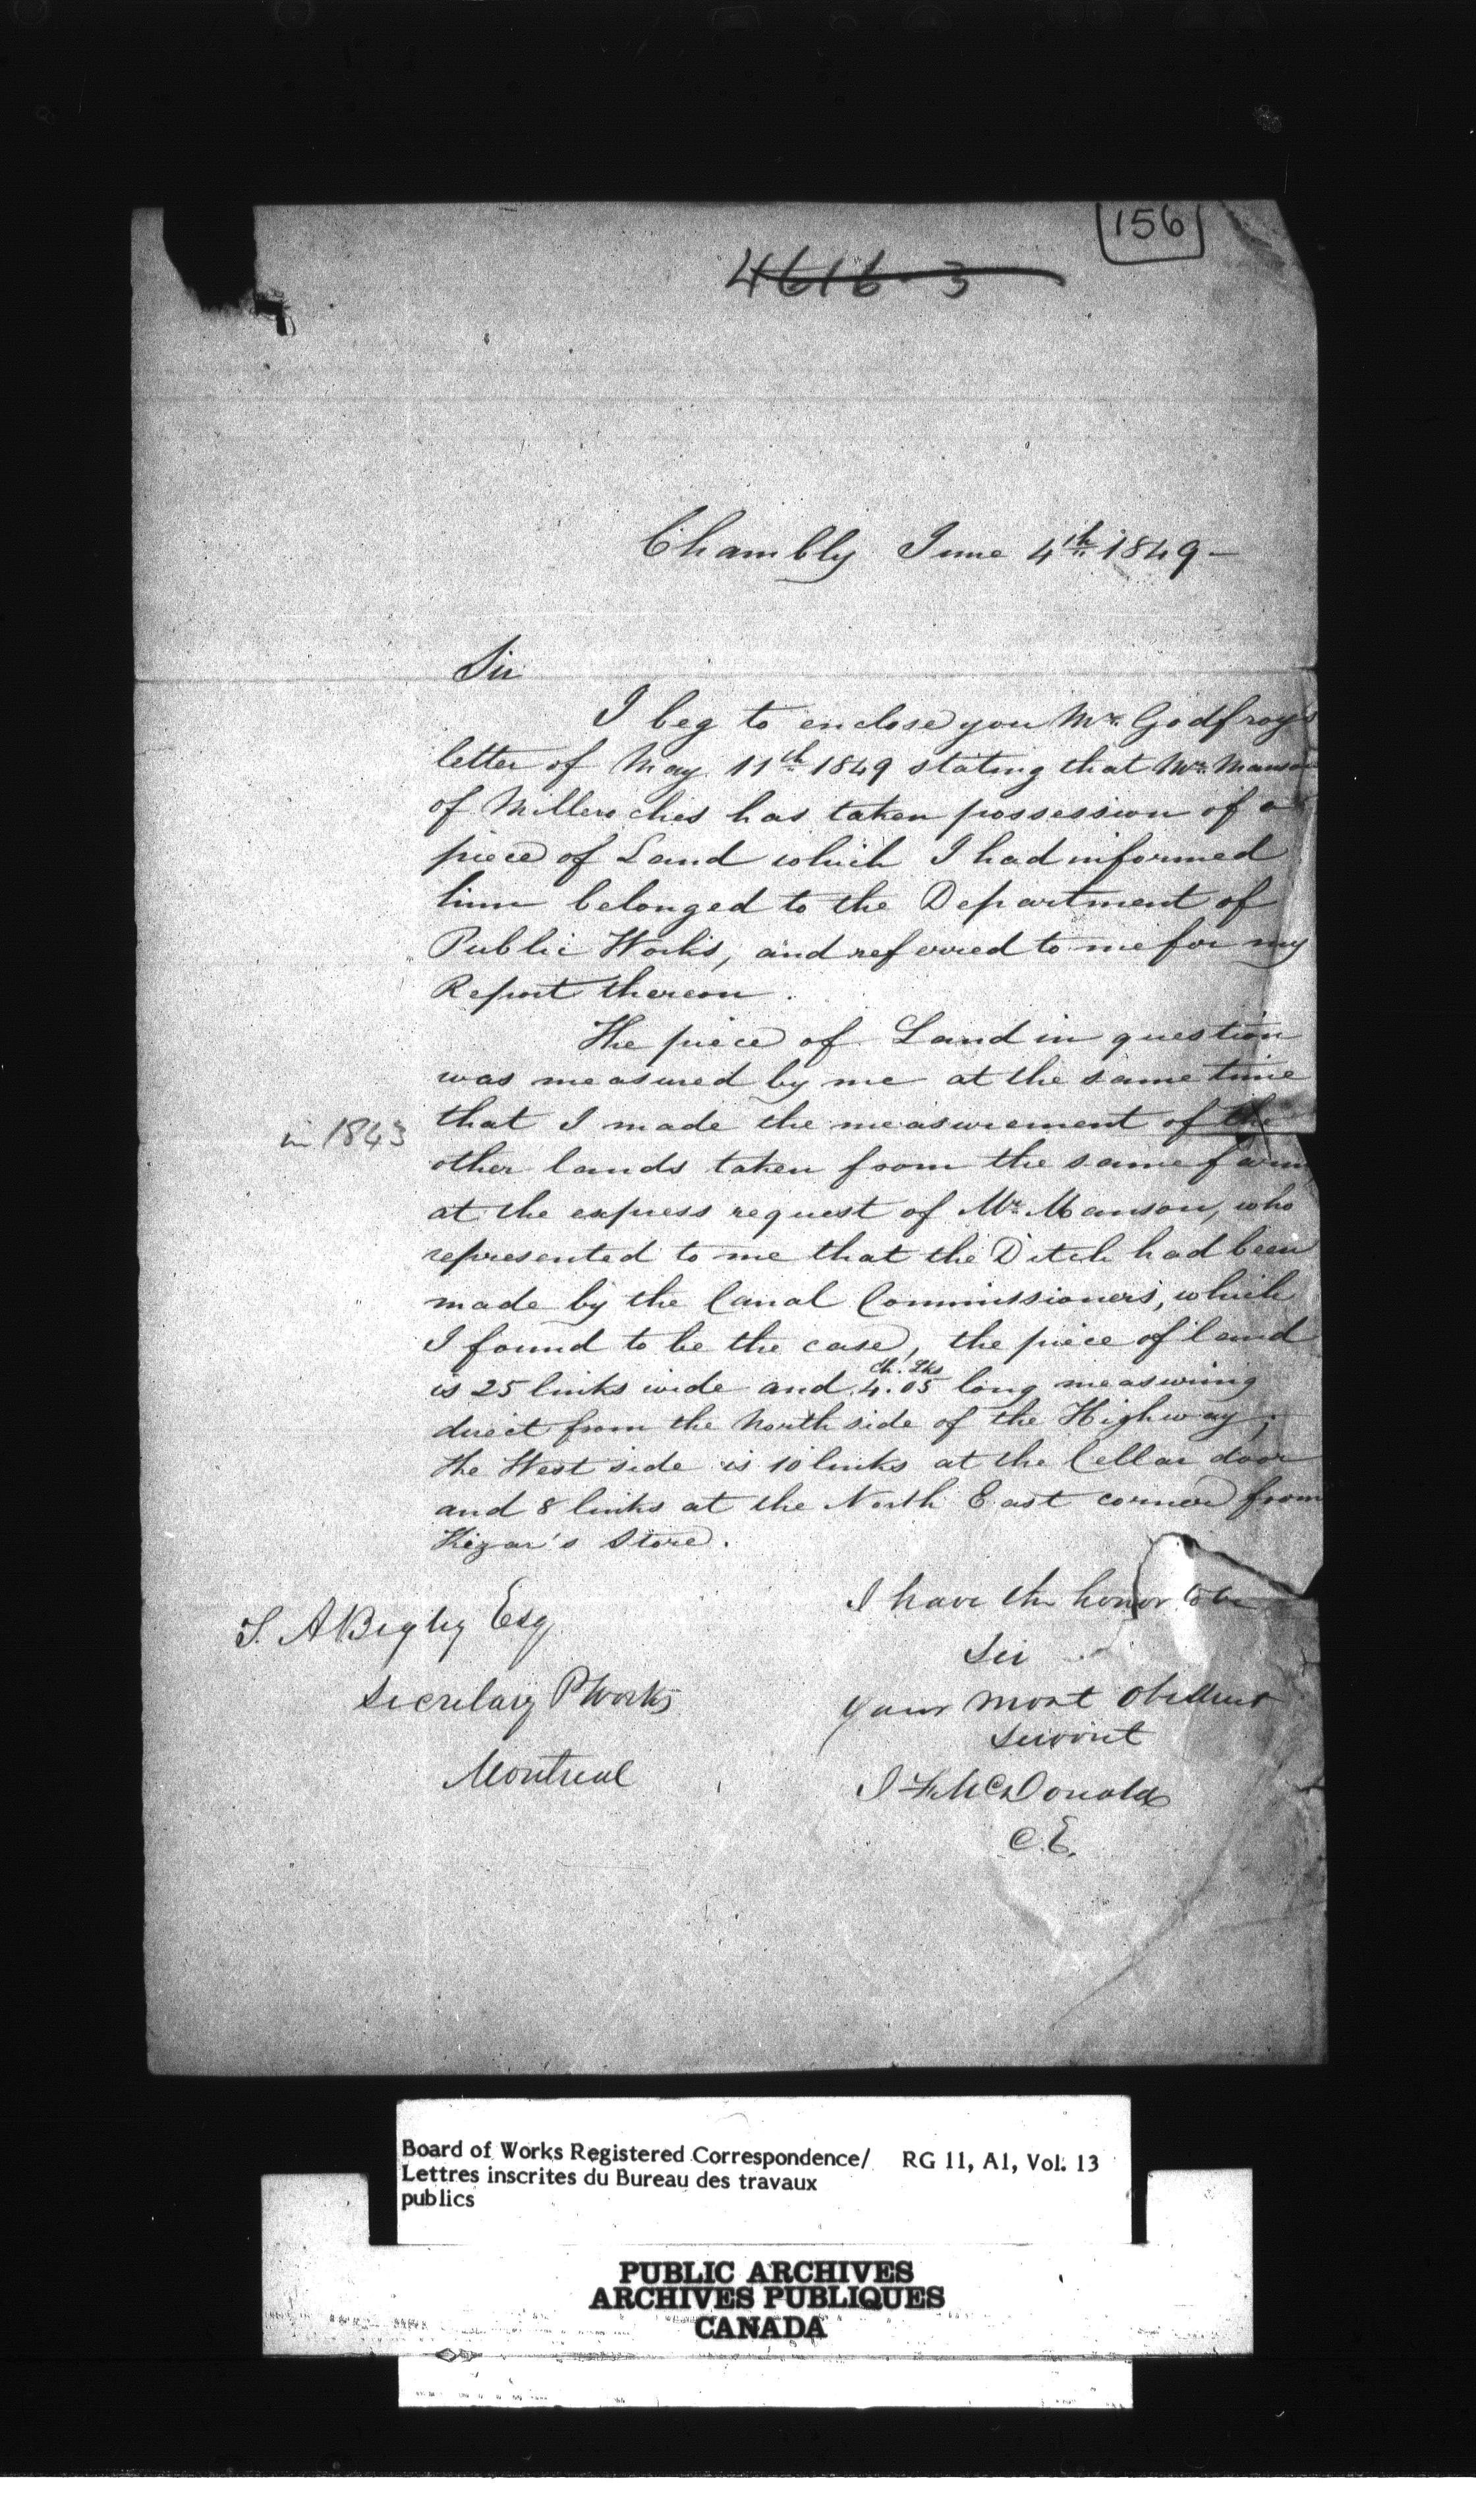 156
4616-3
Chambly June 4th 1849 -
Sir
I beg to enclose you Mr. Godfroy's
letter of May 11th 1849 stating that Mr. Manson
of Milleroches has taken possession of a
piece of Land which I had informed
him belonged to the Department of
Public Works, and referred to me for my
Report thereon.
The piece of Land in question
was measured by me at the same time
in 1843
that I made the measurement of the
other lands taken from the same farm
at the express request of Mr. Manson, who
represented to me that the Ditch had been
made by the Canal Commissioners, which
I found to be the case, the piece of land
Ch. Lks
is 25 links wide and 4.05 long measuring
direct from the North side of the Highway;
the West side is 10 links at the Cellar door
and 8 links at the North East corner from
Store.
I have the honor to be
T. A Begly Esq
Sir
Secretary P Works
your most obedient
servant
Montreal
McDonald
C.E.
Board of Works Registered Correspondence/ RG 11, A1, Vol. 13
Lettres inscrites du Bureau des travaux
publics
PUBLIC ARCHIVES
ARCHIVES PUBLIQUES
CANADA